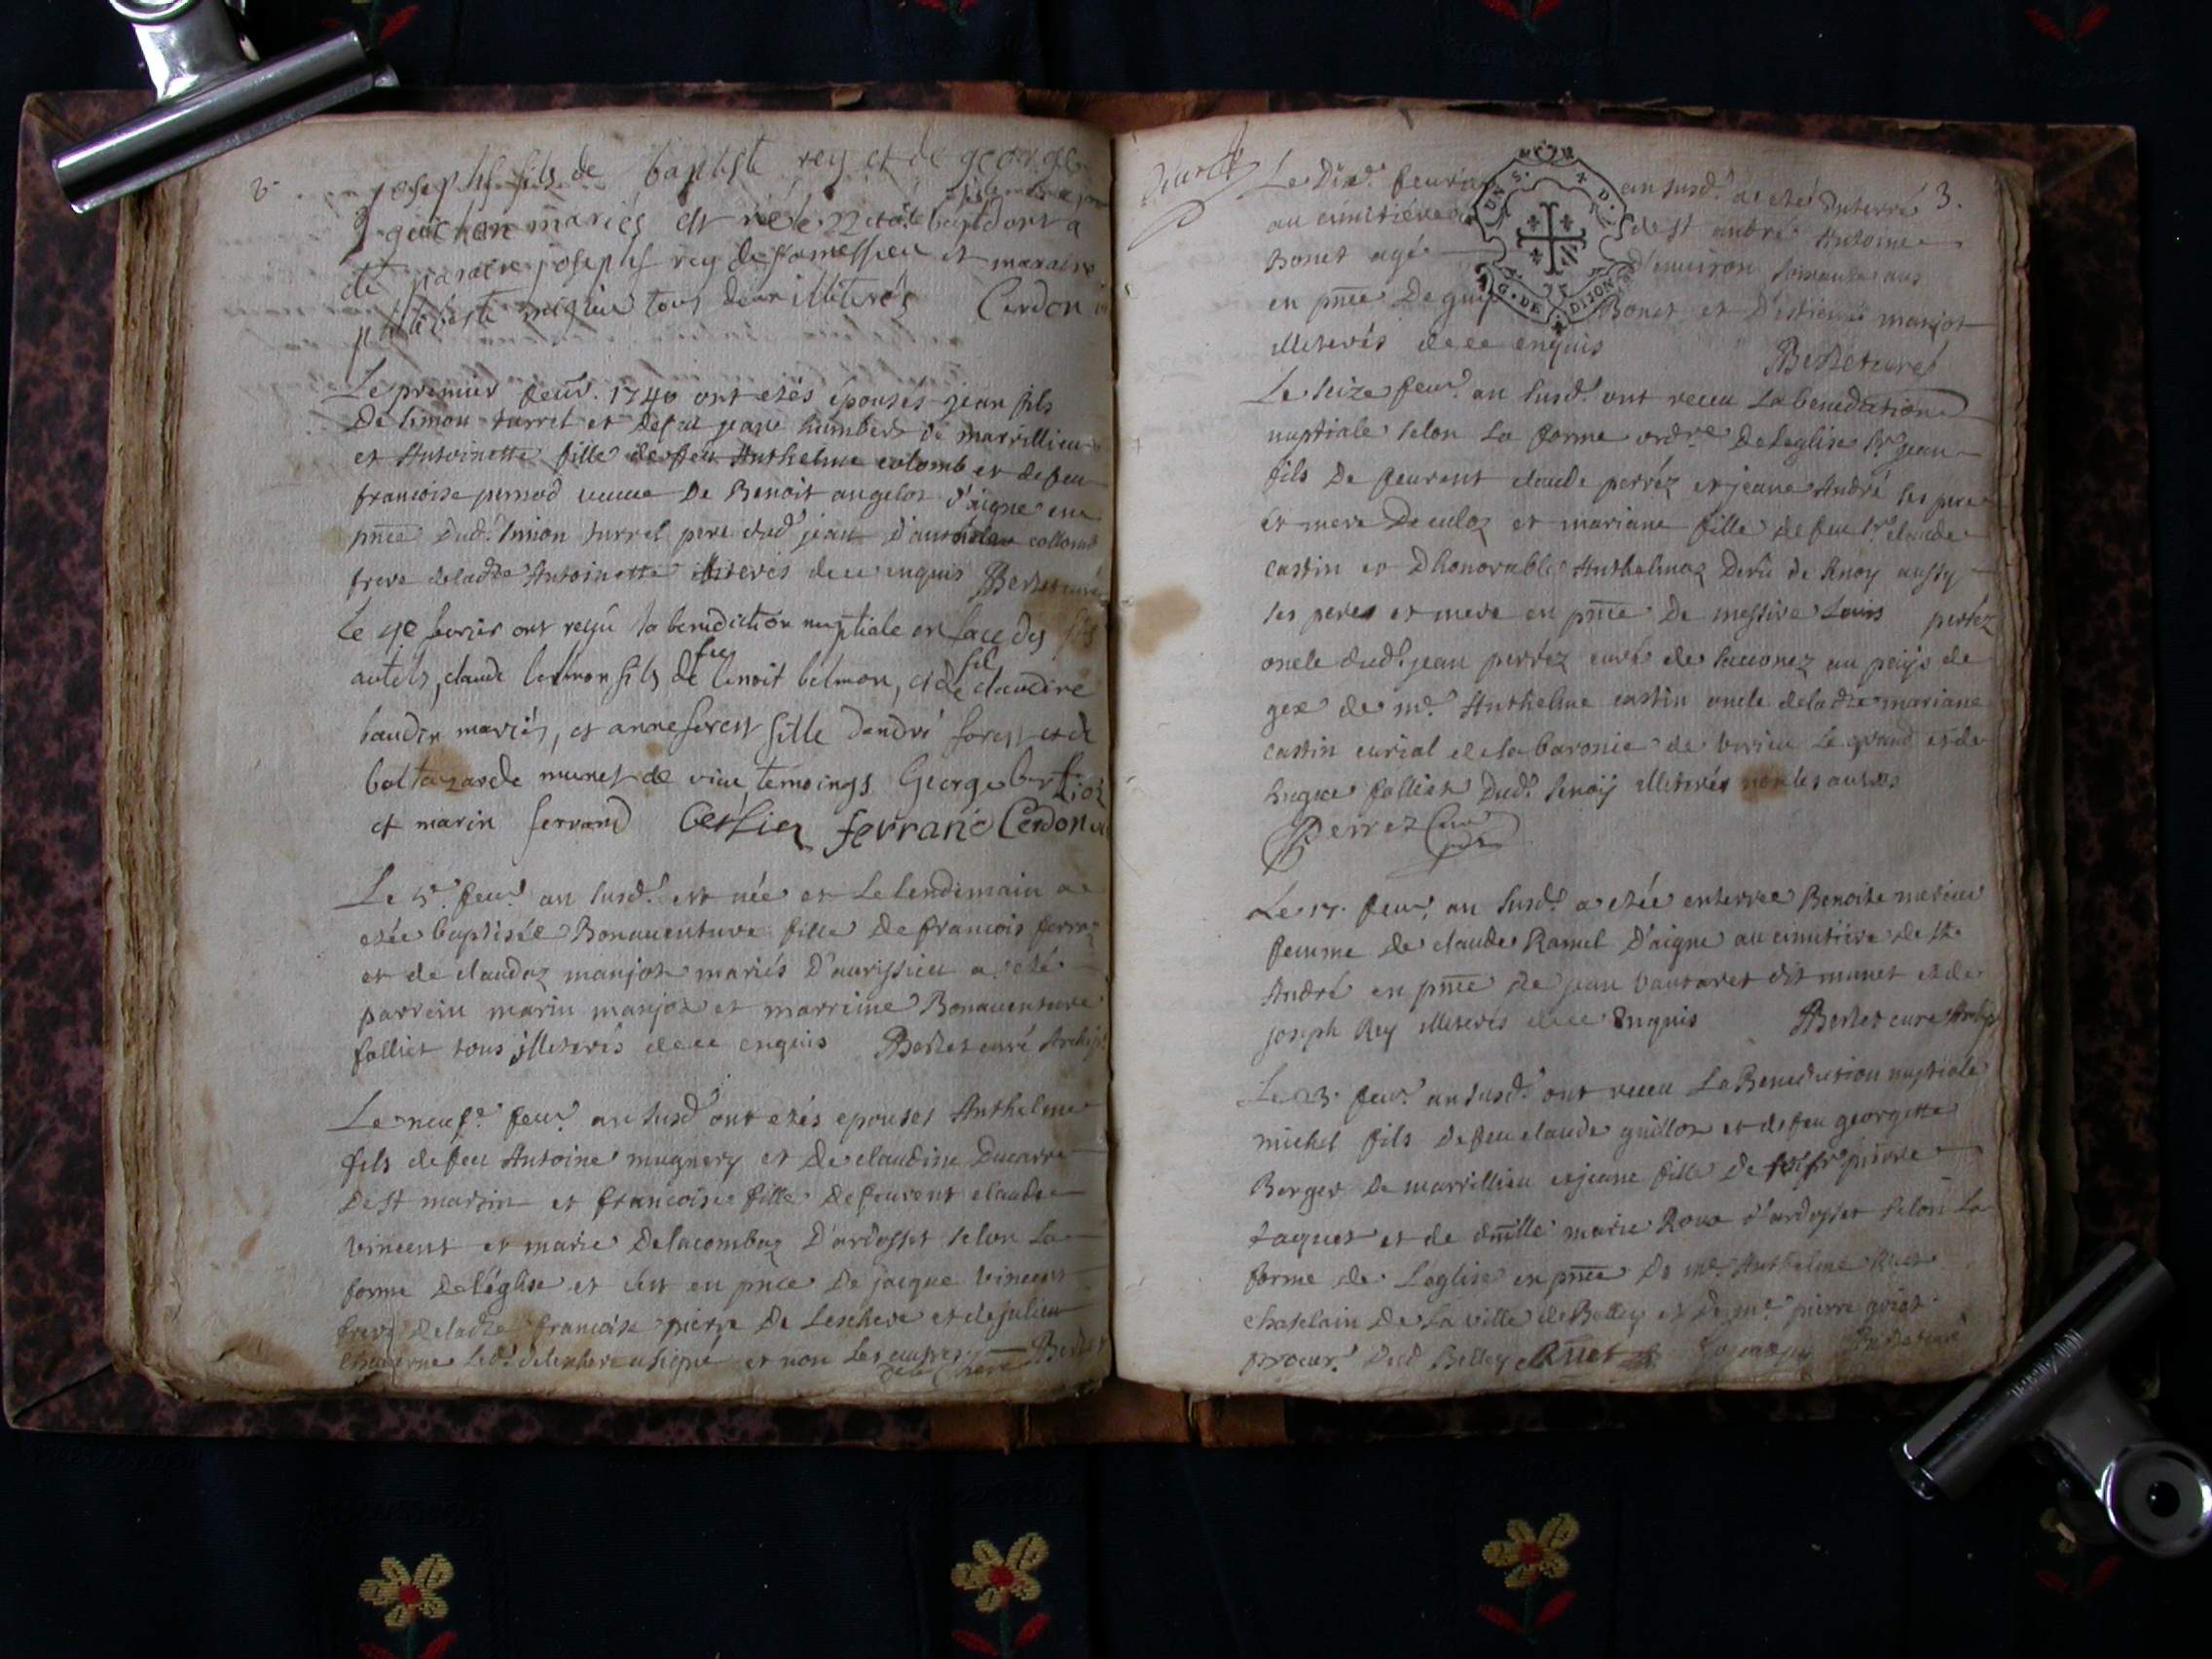 joseph fils de baptiste rey et de george
guichon mariés est né le 22 et a été bapt
été parain joseph rey de et maraine
tous deux illiterés Cerdon
Le premier feuv. 1740 ont etés epousés jean fils
De simon turrel et defue jeane humbert de marrillieu
et Antoinette fille defeu Anthelme colomb et defeu
francoise pernod veuve De Benoit angelot d'aigne en
pnce Dud. simon turrel pere dud jean d'anthelme collomb
frere deladte Antoinette illiterés dece enquis Berlet curé
Le 4e fevrier ont reçu la benediction nuptiale en face des sts
autels, claude belmon fils de feu benoit belmon, et de claudine
baudin mariés, et anne forest fille dandré forest et de
baltazarde munet de viue temoings George
et marin ferrand ferrand Cerdon
Le 5e. feuv. an susd. est née et Le lendemain a
etée baptisée Bonauenture fille De francois ferraz
et de claudaz manjot mariés D'aurissieu a eté
parrein marin manjot et marreine Bonauenture
folliet tous illiterés dece enquis Berlet curé Archip.
Le neufe. feuv. an susd ont etés epousés Anthelme
fils defeu Antoine mugnery et De claudine Ducarre
De st martin et francoise fille De feurent claude
vincent et marie Delacombaz D'ardosset selon La
forme De l'église et cest en pnce De jacque vincent
frere deladte francoise pierre De Leschere et de julien
Led. deleschere a signé et non Les autres Berlet
3.
Le Dixe. feurier an susd. a eté Enterré
au cimitiere de st andré Antoine
Bonet agé D'enuiron soixante ans
en pnce De guy Bonet et D'estienne manjot
illiterés dece enquis Berlet curé
G. DE DIJON
Le seize feuv. an susd. ont receu La benediction
nuptiale selon La forme ordre De Leglise sr. jean
fils De feurent claude perréz et jeane André ses pere
et mere De culoz et mariane fille De feu sr. claude
castin et D'honorable Anthelmaz Deru de Knoy aussy
ses peres et mere en pnce De messire Louis perréz
oncle dud. jean perréz curé de sauonez au peiis de
gex de me. Anthelme castin oncle deladte mariane
castin curial de la baronie de virieu Le grand et de
hugue folliet Dud. illiterés non les autres
Perrez curé
Le 17. feuv. an susd. a etée enterrée Benoite merieu
femme de claude Ramel D'aigne au cimitiere de st
André en pnce de jean vautaret dit munet et de
joseph Rey illiterés dece Enquis Berlet curé Archip
Le 23. feuv. an susd. ont receu La Benediction nuptiale
michel fils De feu claude guillot et defeu georgette
Berger De marrillieu et jeane fille De sr pierre
taquet et de dmlle marie Roux d'ardosset selon La
forme de Léglise en pnce De me. Anthelme Ruet
chatelain De La ville de Belley et De me. pierre
procur. Dud Belley Ruet